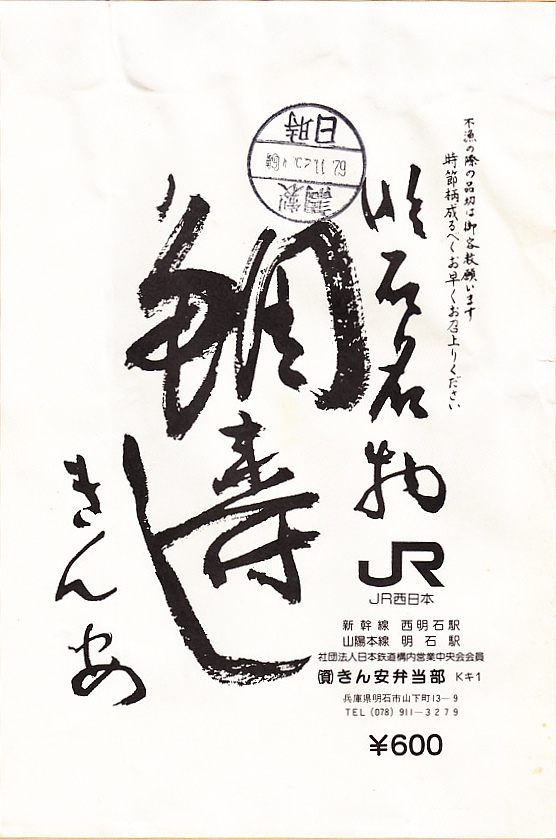 不漁の際の品切は御容赦願います
時節柄成るべくお早くお召上りください
明石名物
鯛寿し
きん安
調製
日時
JR
JR西日本
新幹線 西明石駅
山陽本線 明石駅
社団法人日本鉄道構内営業中央会会員
㈾きん安弁当部 Kキ1
兵庫県明石市山下町13―9
TEL (078) 911―3279
¥600